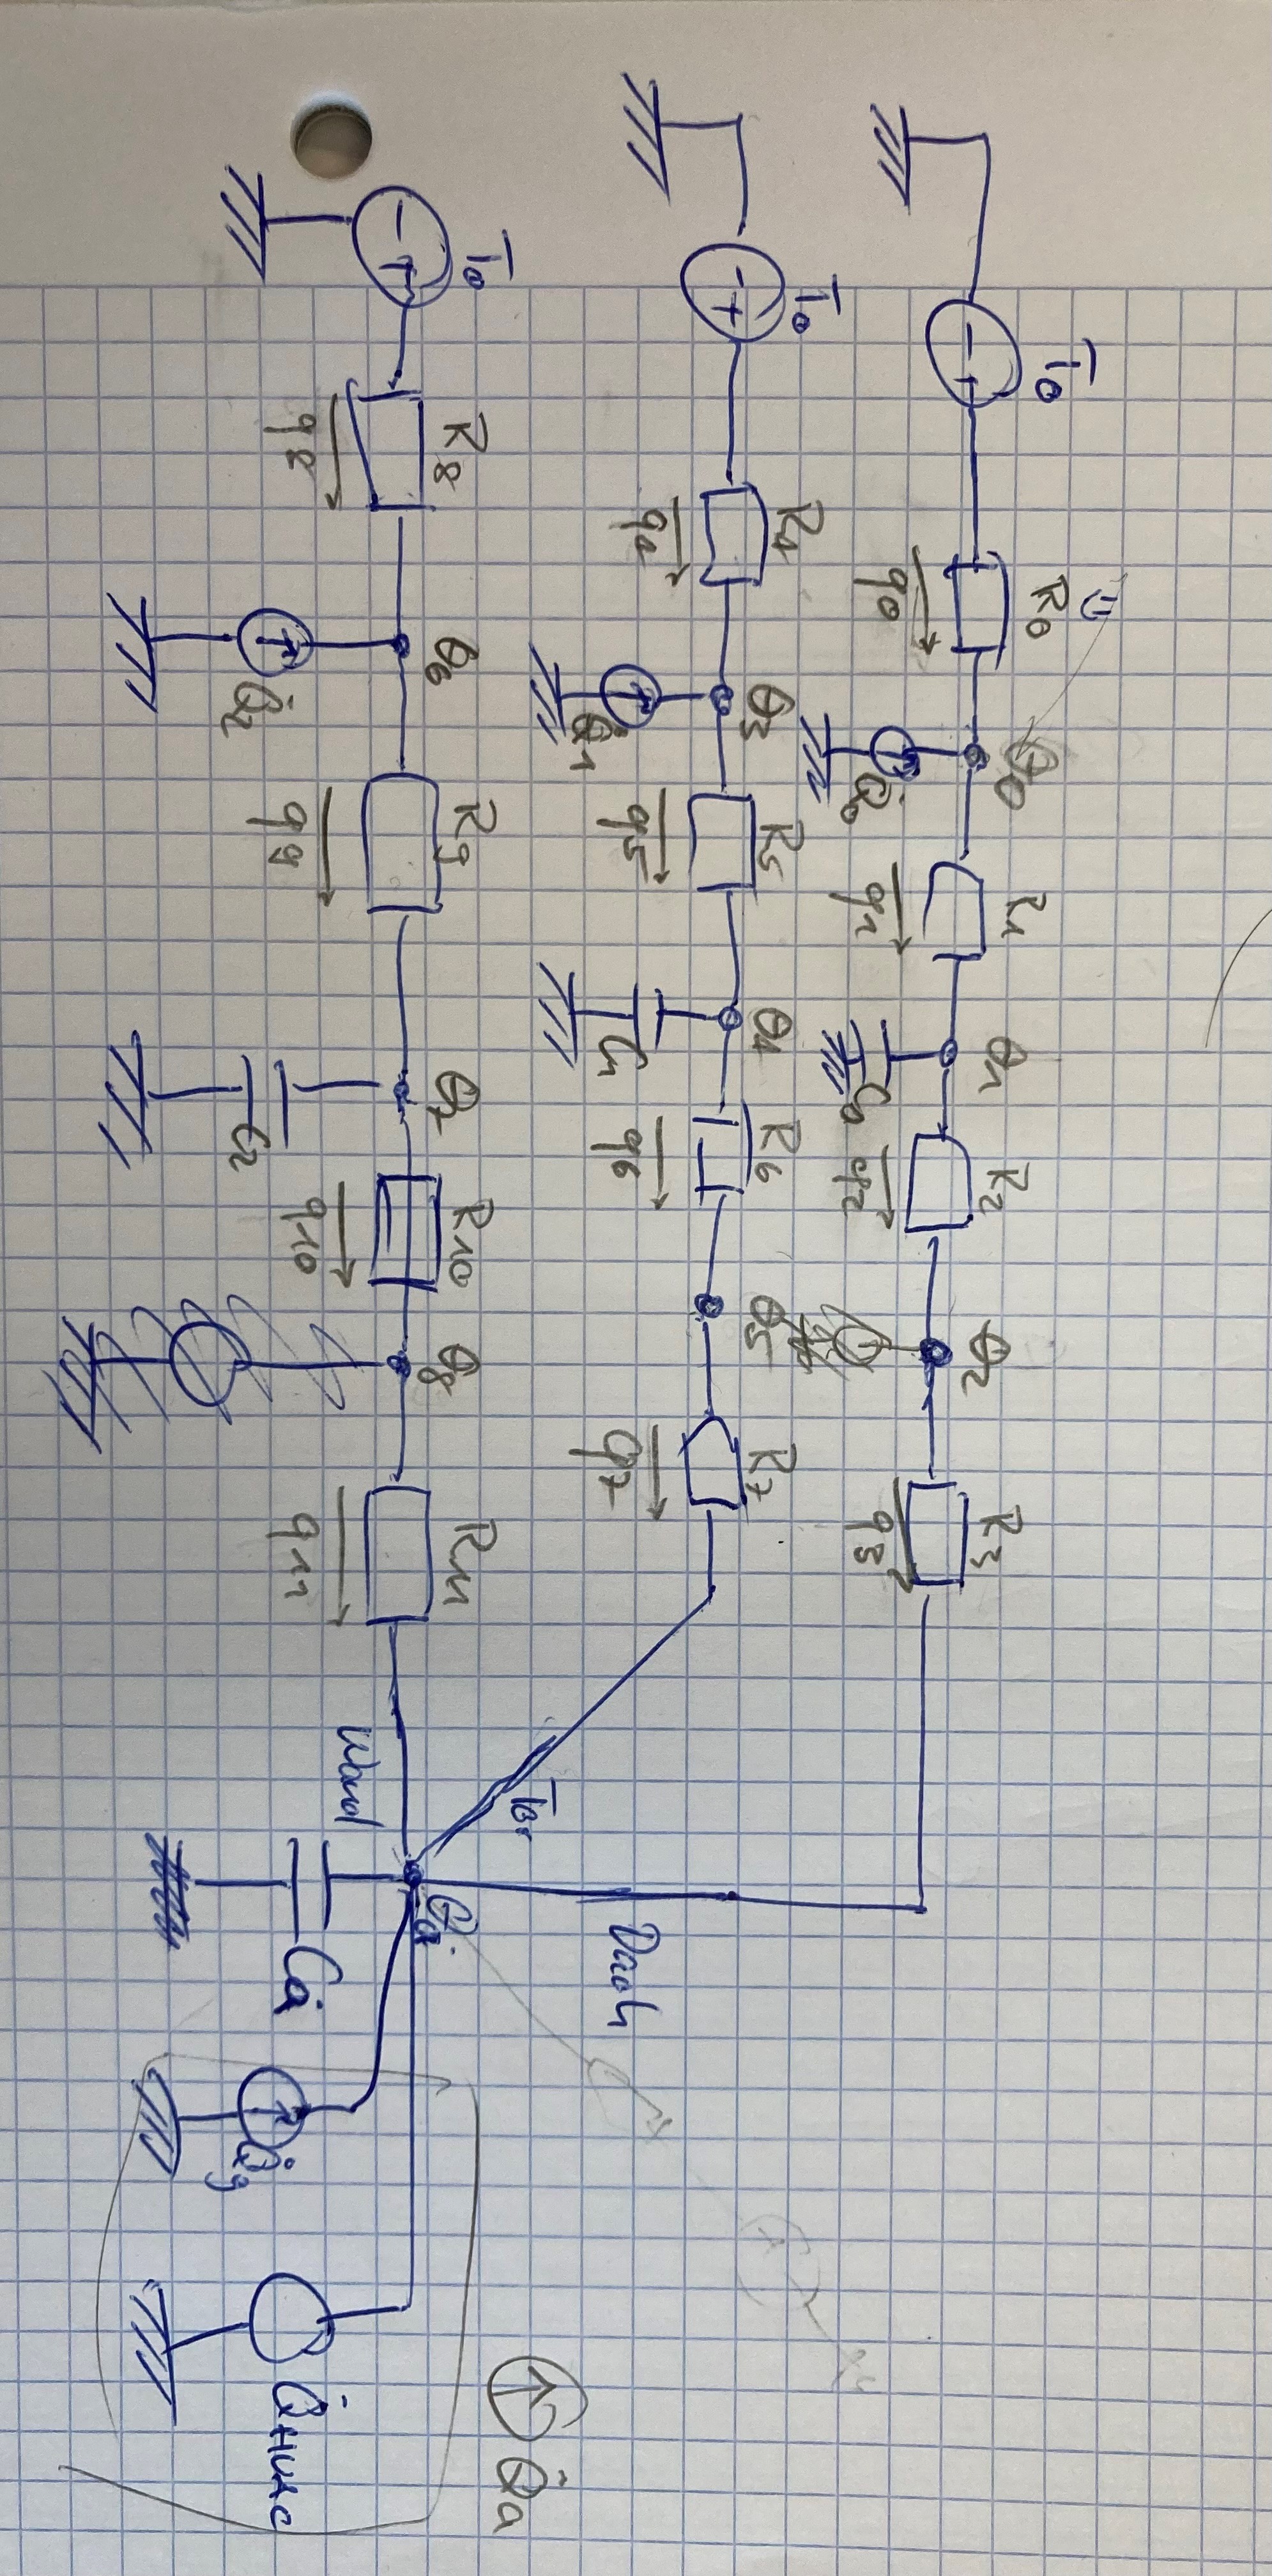 T0
R0
q0
θ0
Q̇0
R1
q1
θ1
C0
R2
q2
θ2
R3
q3
Dach
T0
R4
q4
θ3
Q̇1
R5
q5
θ4
C1
R6
q6
θ5
R7
q7
Tor
T0
R8
q8
θ6
Q̇2
R9
q9
θ7
C2
R10
q10
θ8
R11
q11
Wand
θa
Ca
Q̇3
Q̇HVAC
Q̇a